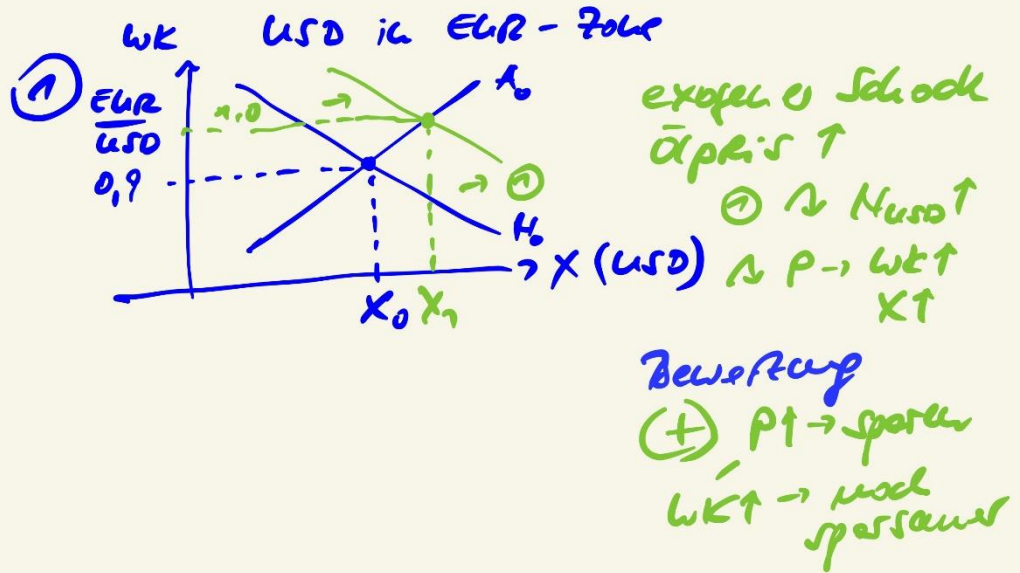 WK USD in EUR-Zone
①
EUR
USD
0,9
1,0
→
A₀
→ ①
N₀
→ X (USD)
X₀ X₁
exogener Schock
Ölpreis ↑
① ↷ N_USD ↑
↷ P → WK ↑
X ↑
Bewertung
(+) P↑ → sparen
WK↑ → noch
sparsamer